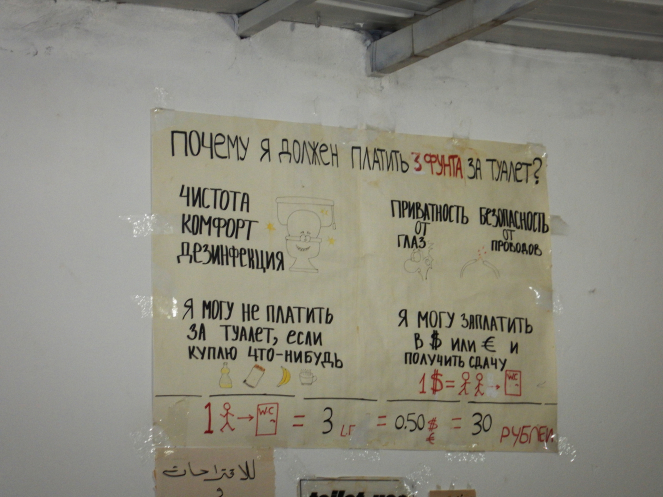 ПОЧЕМУ Я ДОЛЖЕН ПЛАТИТЬ 3 ФУНТА ЗА ТУАЛЕТ?
ЧИСТОТА
КОМФОРТ
ДЕЗИНФЕКЦИЯ
ПРИВАТНОСТЬ
ОТ
ГЛАЗ
БЕЗОПАСНОСТЬ
ОТ
ПРОВОДОВ
Я МОГУ НЕ ПЛАТИТЬ
ЗА ТУАЛЕТ, ЕСЛИ
КУПЛЮ ЧТО-НИБУДЬ
Я МОГУ ЗАПЛАТИТЬ
В $ ИЛИ € И
ПОЛУЧИТЬ СДАЧУ
1$ = → WC
1 → WC = 3 LE = 0.50 $ € = 30 РУБЛЕЙ
للاقتراحات